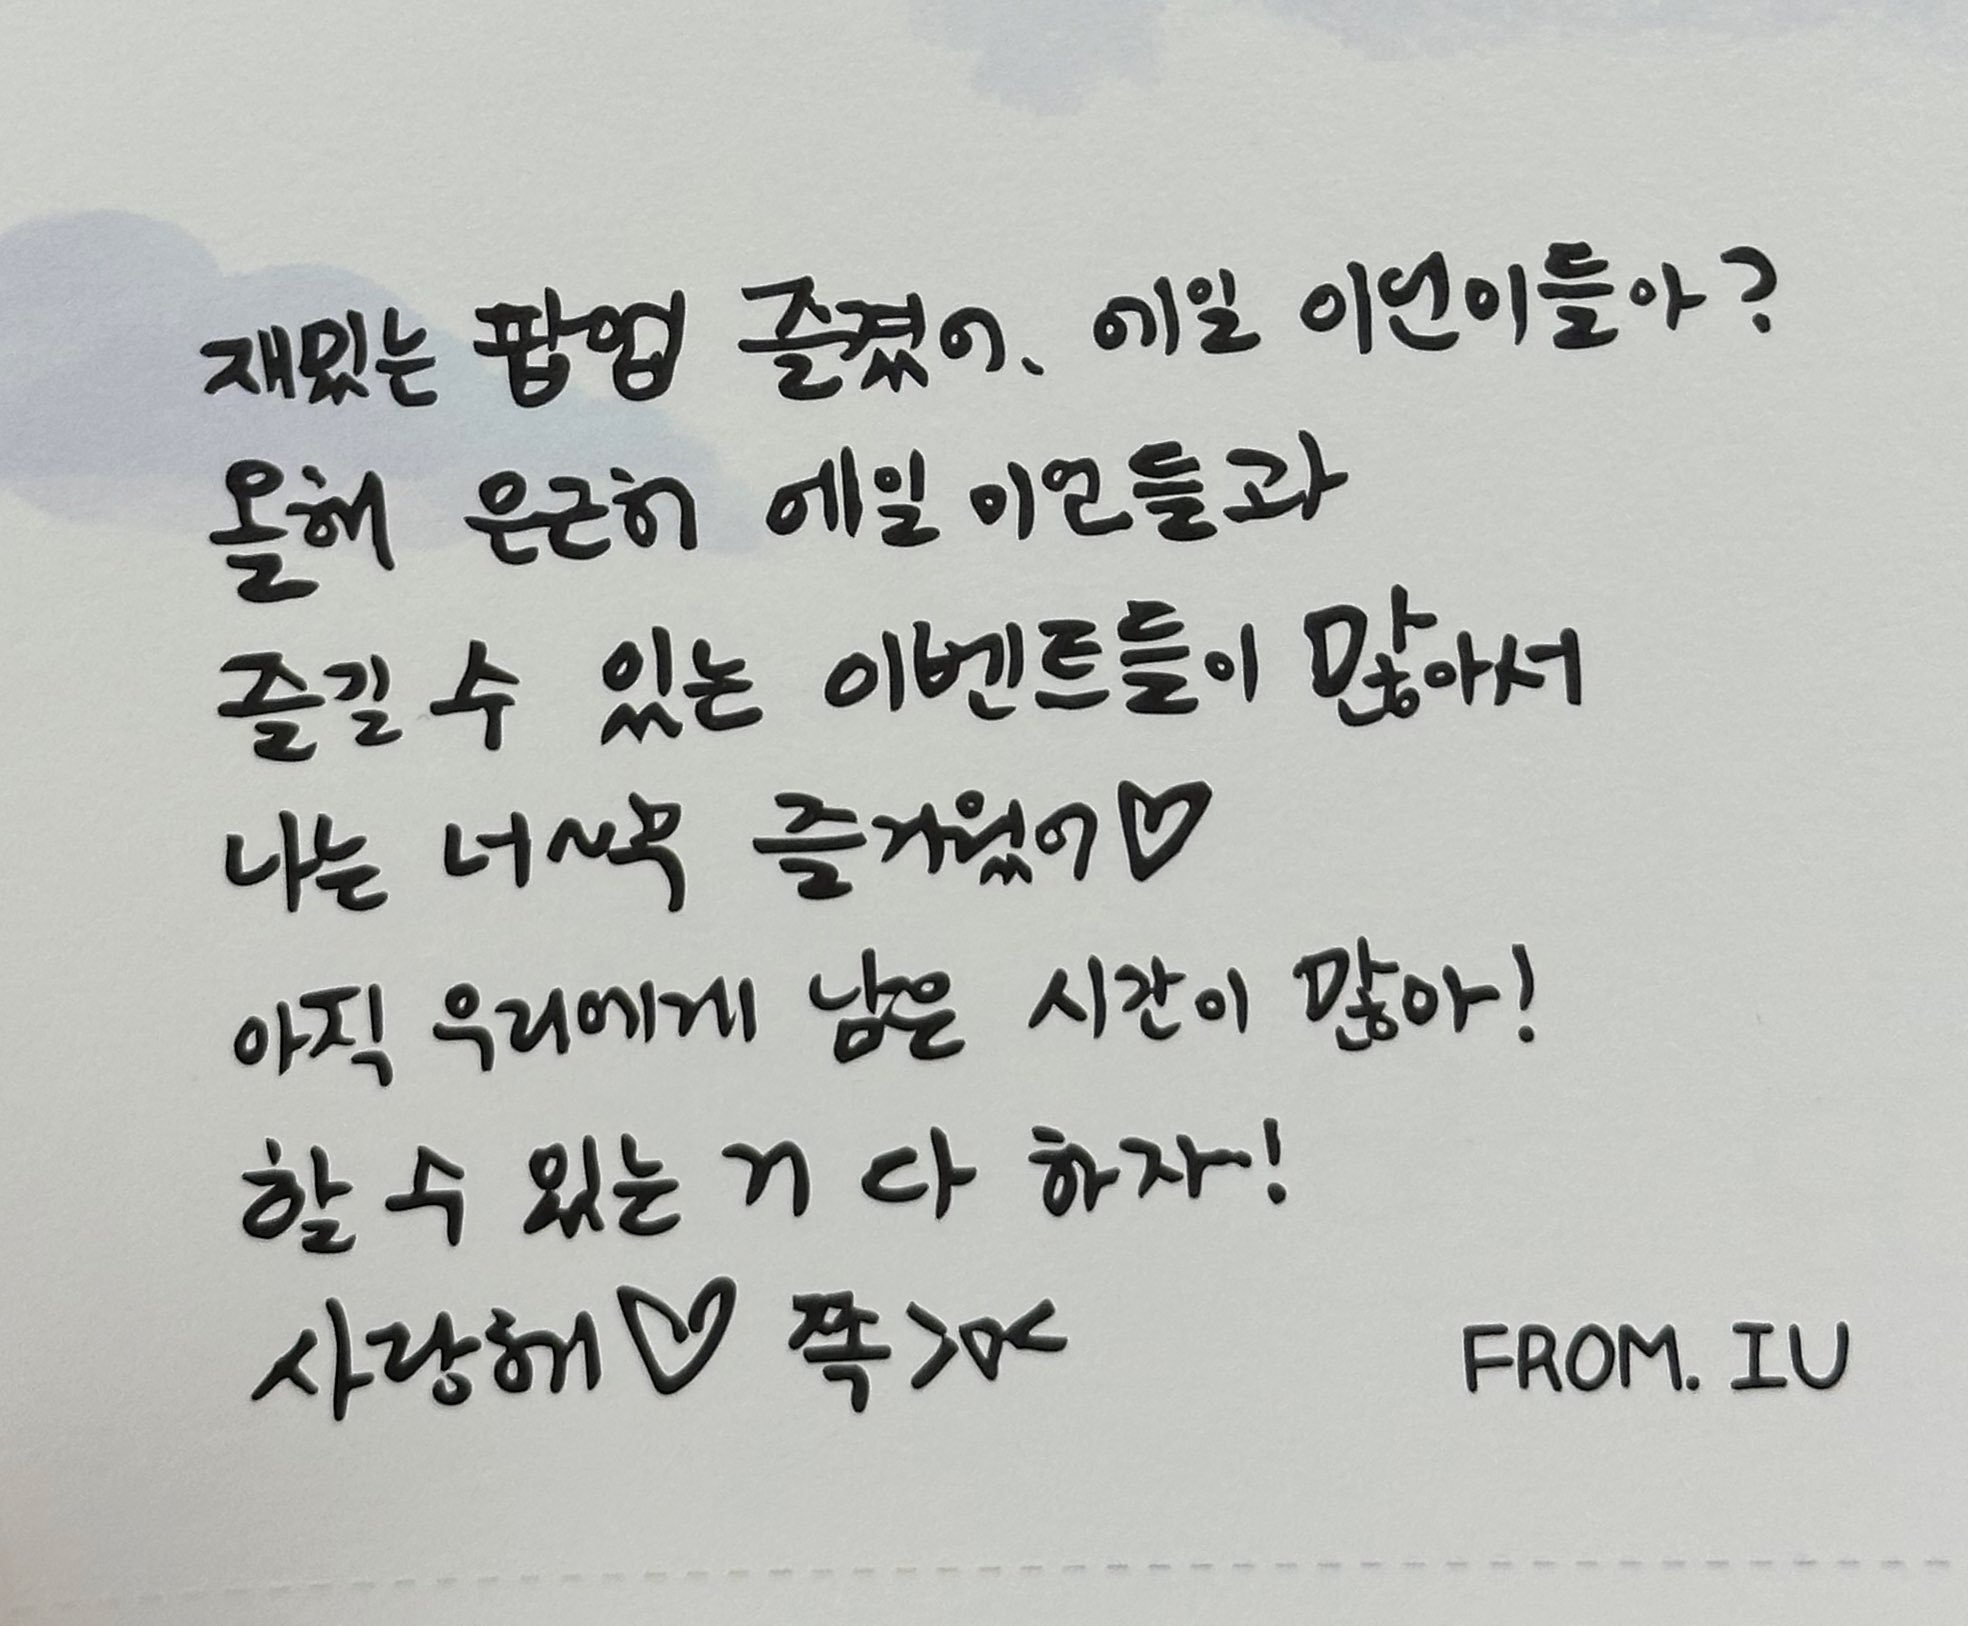 재밌는 팝업 즐겼어, 에일 이언이들아?
올해 은근히 에일 이언들과
즐길 수 있는 이벤트들이 많아서
나는 너~무 즐거웠어♡
아직 우리에게 남은 시간이 많아!
할 수 있는 거 다 하자!
사랑해♡ 쪽>3<
FROM. IU